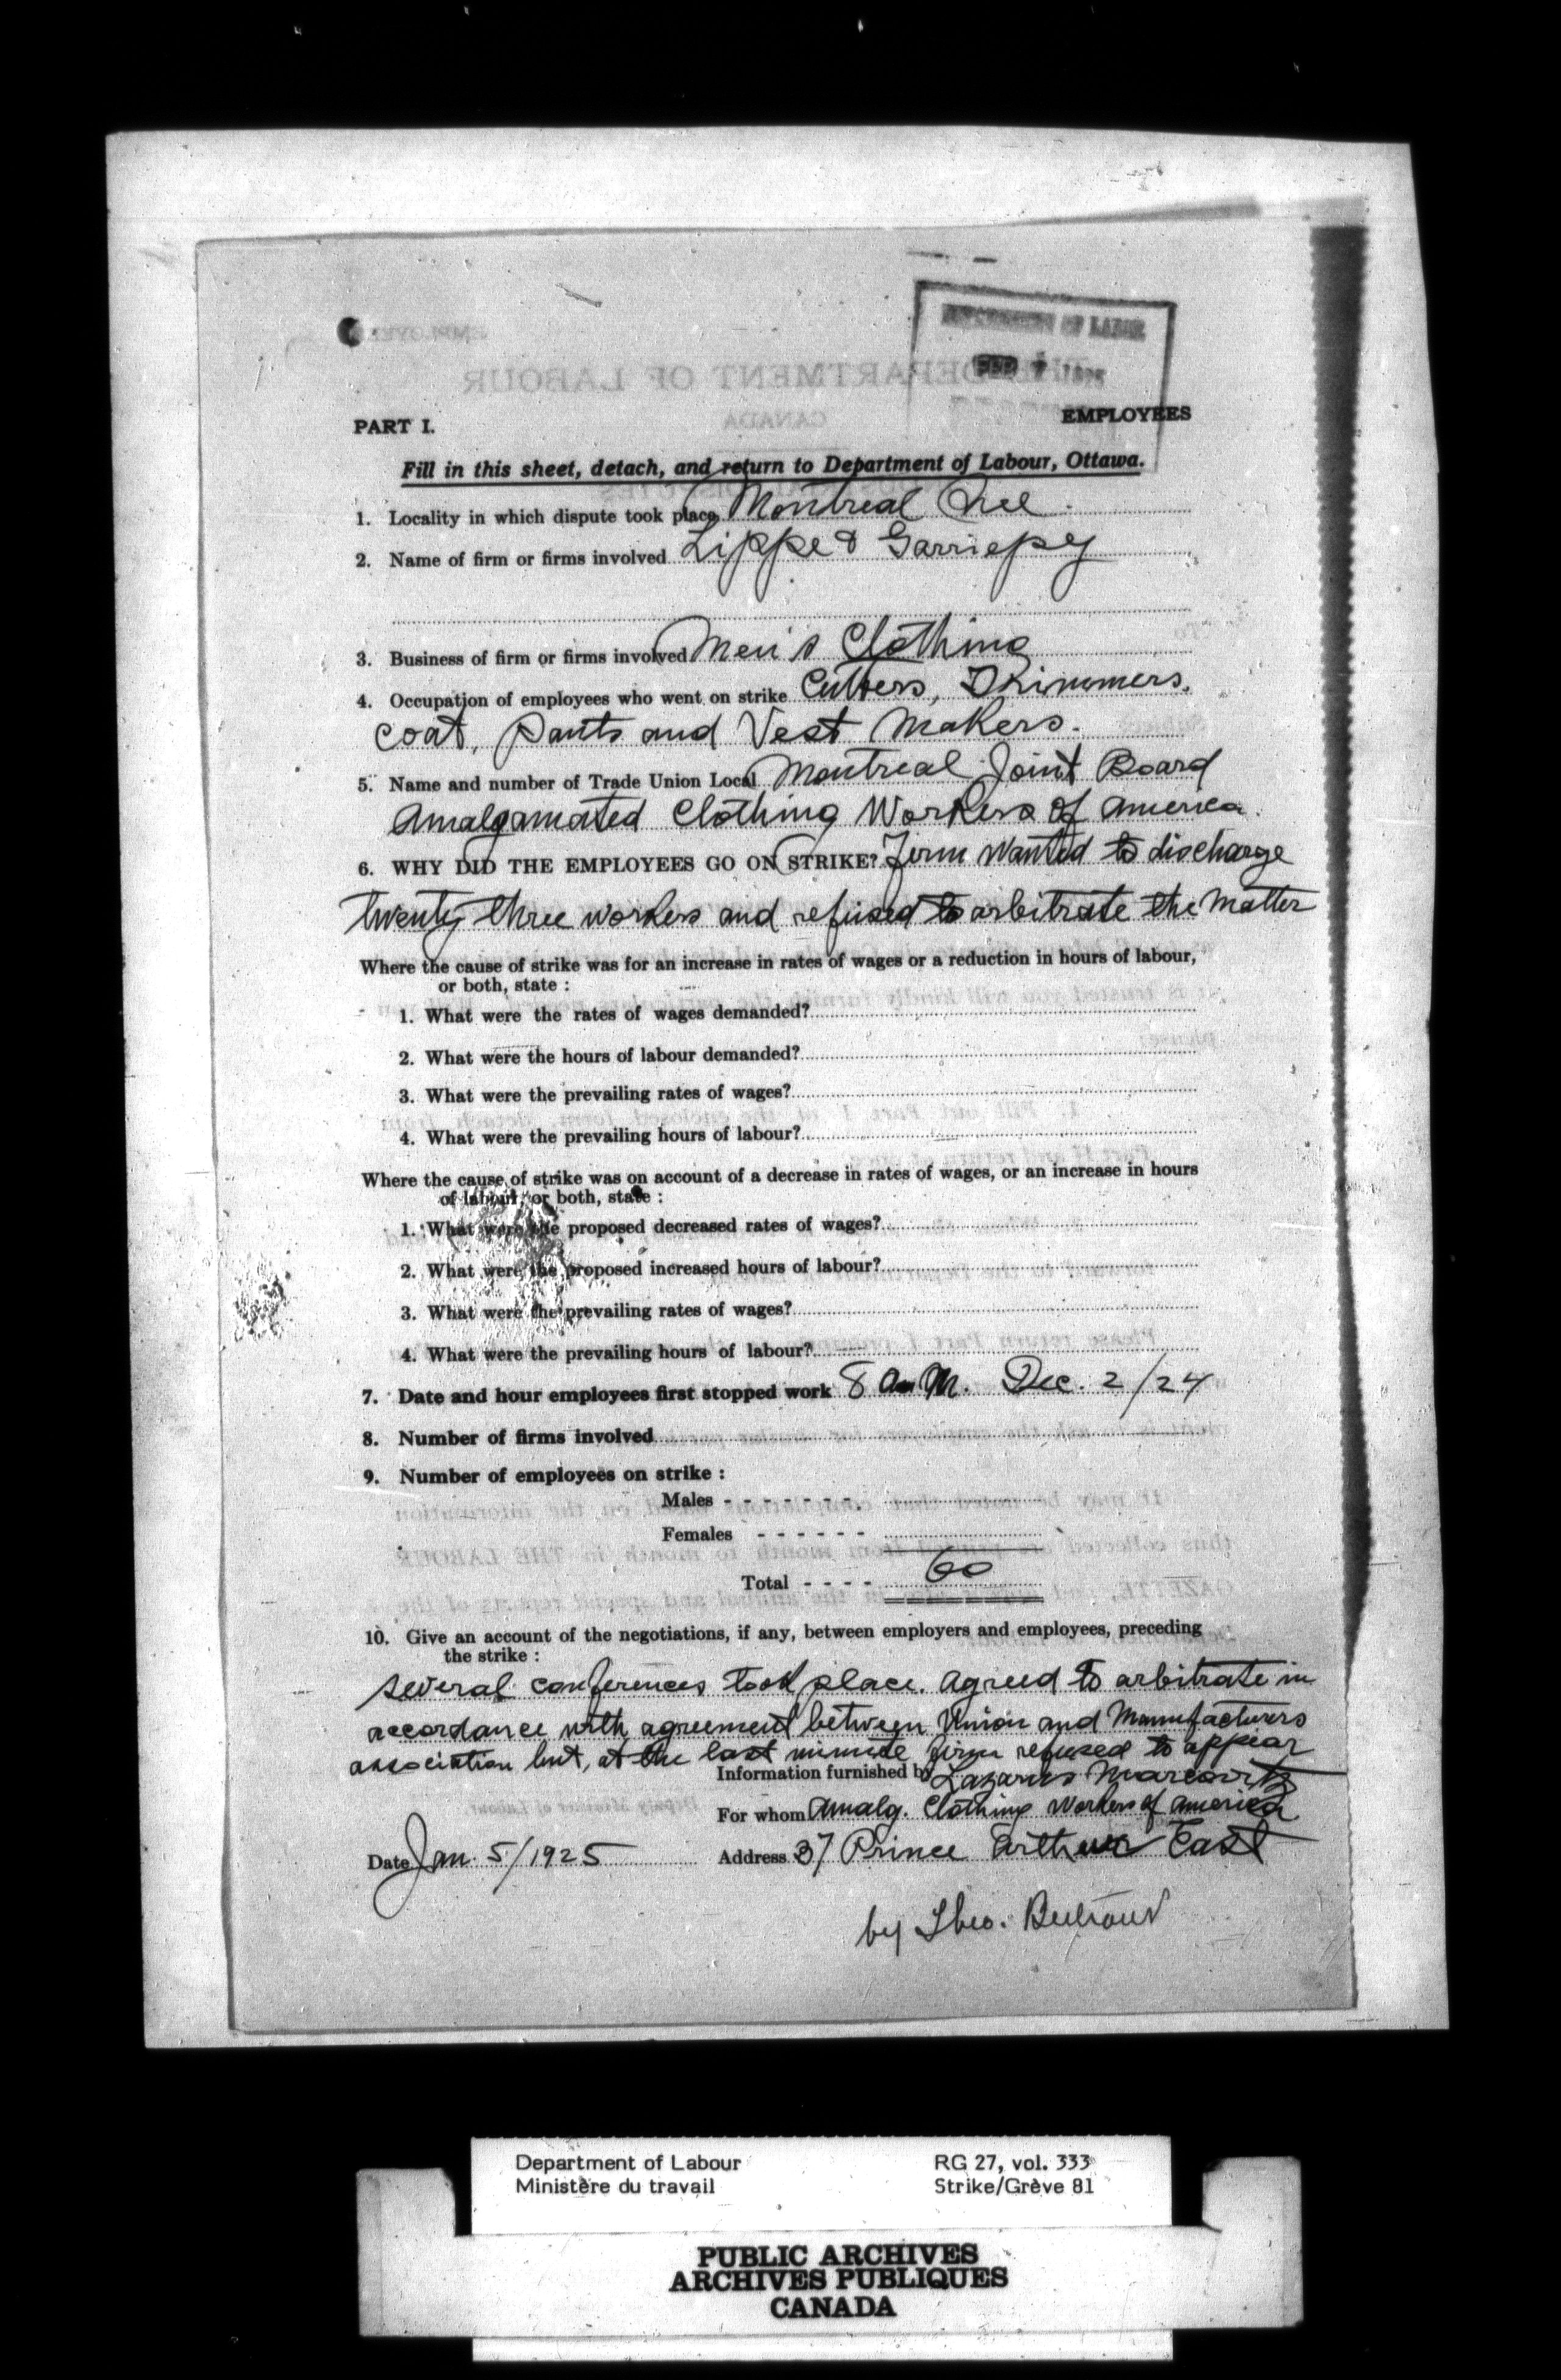 DEPARTMENT OF LABOR
FEB 7 1925
PART I.
EMPLOYEES
Fill in this sheet, detach, and return to Department of Labour, Ottawa.
1. Locality in which dispute took place Montreal Que.
2. Name of firm or firms involved Lippe & Garriepy
3. Business of firm or firms involved Men's Clothing
4. Occupation of employees who went on strike Cutters, Trimmers,
coat, pants and Vest Makers.
5. Name and number of Trade Union Local Montreal Joint Board
Amalgamated Clothing Workers of America.
6. WHY DID THE EMPLOYEES GO ON STRIKE? Firm wanted to discharge
twenty three workers and refused to arbitrate the matter
Where the cause of strike was for an increase in rates of wages or a reduction in hours of labour,
or both, state :
1. What were the rates of wages demanded?
2. What were the hours of labour demanded?
3. What were the prevailing rates of wages?
4. What were the prevailing hours of labour?
Where the cause of strike was on account of a decrease in rates of wages, or an increase in hours
of labour, or both, state :
1. What were the proposed decreased rates of wages?
2. What were the proposed increased hours of labour?
3. What were the prevailing rates of wages?
4. What were the prevailing hours of labour?
7. Date and hour employees first stopped work 8 a.m. Dec. 2/24
8. Number of firms involved
9. Number of employees on strike :
Males - - - - - - -
Females - - - - - -
Total - - - - 60
10. Give an account of the negotiations, if any, between employers and employees, preceding
the strike :
several conferences took place. agreed to arbitrate in
accordance with agreement between Union and Manufacturers
association but, at the last minute firm refused to appear
Information furnished by Lazarus Marcovitz
For whom Amalg. Clothing Workers of America
Date Jan. 5/1925
Address 37 Prince Arthur East
by Theo.
Department of Labour
Ministère du travail
RG 27, vol. 333
Strike/Grève 81
PUBLIC ARCHIVES
ARCHIVES PUBLIQUES
CANADA